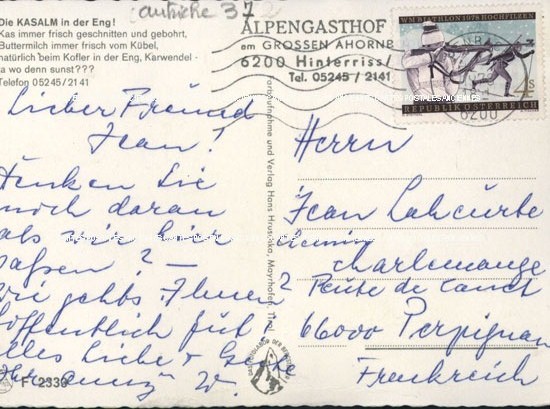 autriche 37
Die KASALM in der Eng!
Kas immer frisch geschnitten und gebohrt,
Buttermilch immer frisch vom Kübel,
natürlich beim Kofler in der Eng, Karwendel-
a wo denn sunst???
Telefon 05245/21 41
ALPENGASTHOF
am GROSSEN AHORNB
6200 Hinterriss/
Tel. 05245 / 2141
WM BIATHLON 1978 HOCHFILZEN
S 4
REPUBLIK ÖSTERREICH
6200
Lieber Freund
Jean!
Denken Sie
noch daran
als wir hier
saßen? –
Wie gehts Ihnen?
Hoffentlich gut!
Alles Liebe + Gute
Ihre W.
F 2339
Farbaufnahme und Verlag Hans Hruschka, Mayrhofen, Tirol
Herrn
Jean Lahcurbe
chemin
charlemange
Route de canet
66000 Perpignan
Frankreich